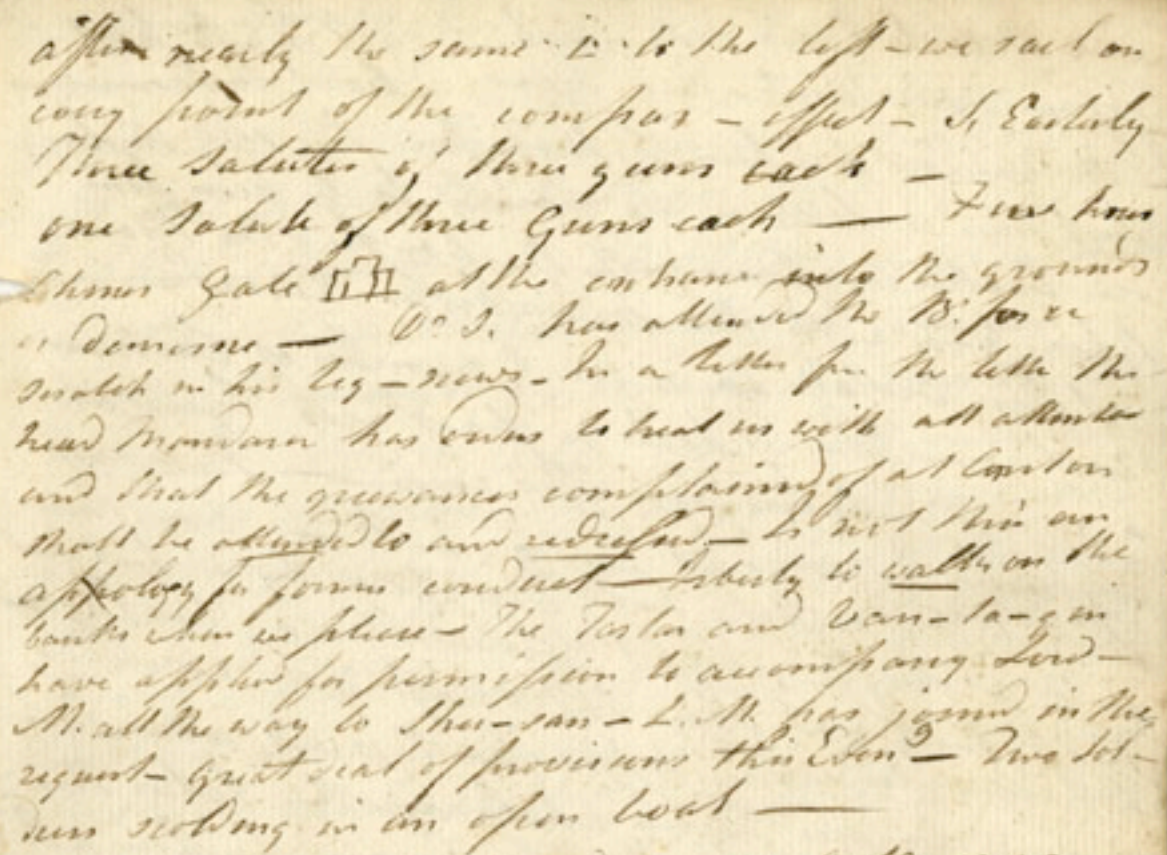 after nearly the same to the left – we sail on
every point of the compass – effect – S. Easterly
Three salutes of three guns each –
one salute of three Guns each — hours
Gate at the entrance into the grounds
or demesne — Dr. S. has attended the B. for a
scratch in his leg – news – In a letter for the the
head Mandarin has orders to treat us with all attention
and that the grievances complained of at Canton
shall be attended to and redressed – Is not this an
appology for former conduct — Liberty to walk on the
banks when we please – The Tartar and Van-ta-gin
have applied for permission to accompany Lord –
M. all the way to – L. M. has joined in the
request – Great deal of provisions this Even.g – Two
in an open boat —